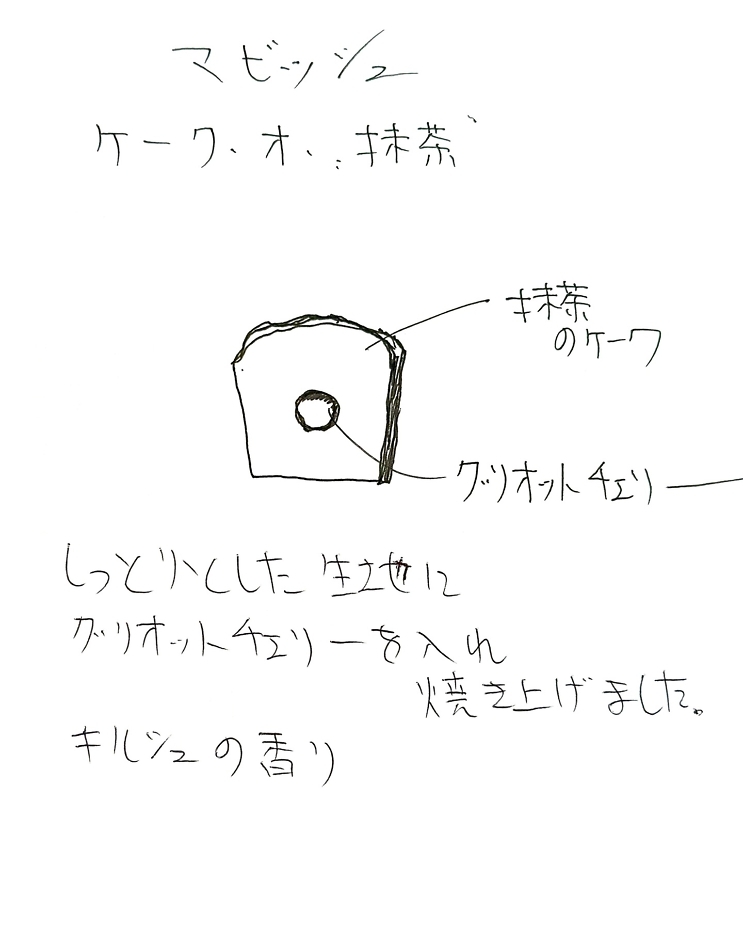 マビッシュ
ケーク・オ・抹茶
抹茶
のケーク
グリオットチェリー
しっとりとした生地に
グリオットチェリーを入れ
焼き上げました。
キルシュの香り